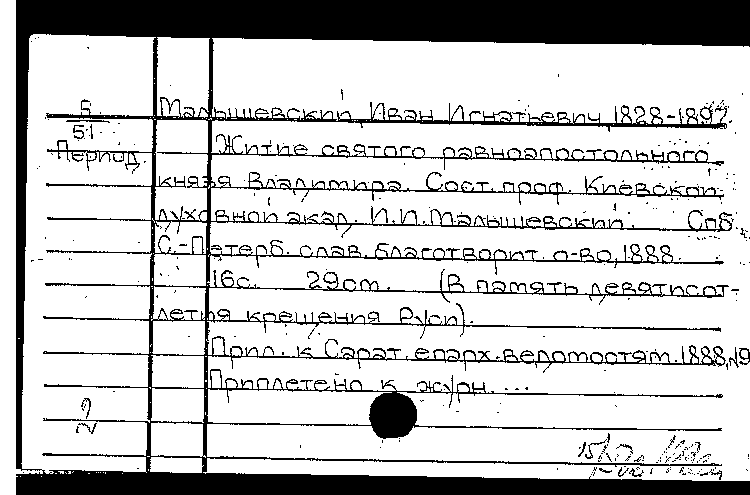 Б
51
Малышевский, Иван Игнатьевич, 1828-1897.
Период.
Житие святого равноапостольного
князя Владимира. Сост. проф. Киевской
духовной акад. И.И. Малышевский. Спб
С.-Петерб. слав. благотворит. о-во, 1888.
16с. 29см. (В память девятисот-
летия крещения Руси).
Прил. к Сарат. епарх. ведомостям. 1888, №9
Приплетено к журн. ...